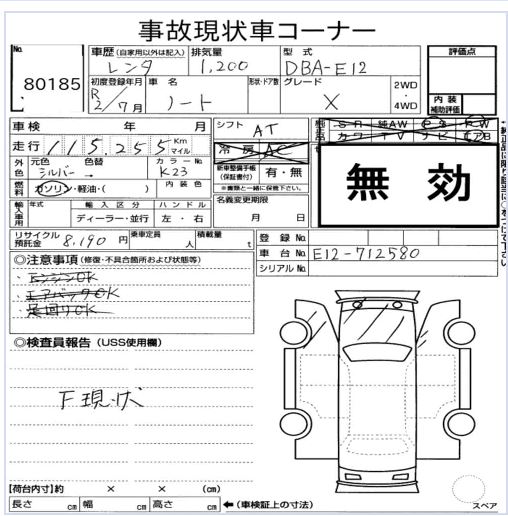 事故現状車コーナー
No. 80185
車歴 (自家用以外は記入) レンタ 排気量 1,200 型式 DBA-E12 評価点
初度登録年月 R 2/7月 車名 ノート 形状・ドア数 グレード X 2WD ・ 4WD 内装補助評価
車検 年 月 シフト AT
走行 115,255 Km マイル 冷房 AC
外色 元色 シルバー 色替 カラーNo. K23 新車整備手帳(保証書付) 有・無 無効
燃料 ガソリン・軽油・( ) 内装色 ※書類と一緒に保管下さい。
輸入車用 年式 輸入区分 ディーラー・並行 ハンドル 左・右 名義変更期限 月 日
リサイクル預託金 8,190 円 乗車定員 人 積載量 t 登録No.
車台No. E12-712580
シリアルNo.
◎注意事項 (修復・不具合箇所および状態等)
・エンジンOK
・エアバックOK
・足回りOK
◎検査員報告 (USS使用欄)
下現状
【荷台内寸】約 × × (cm)
長さ cm 幅 cm 高さ cm ←(車検証上の寸法)
スペア